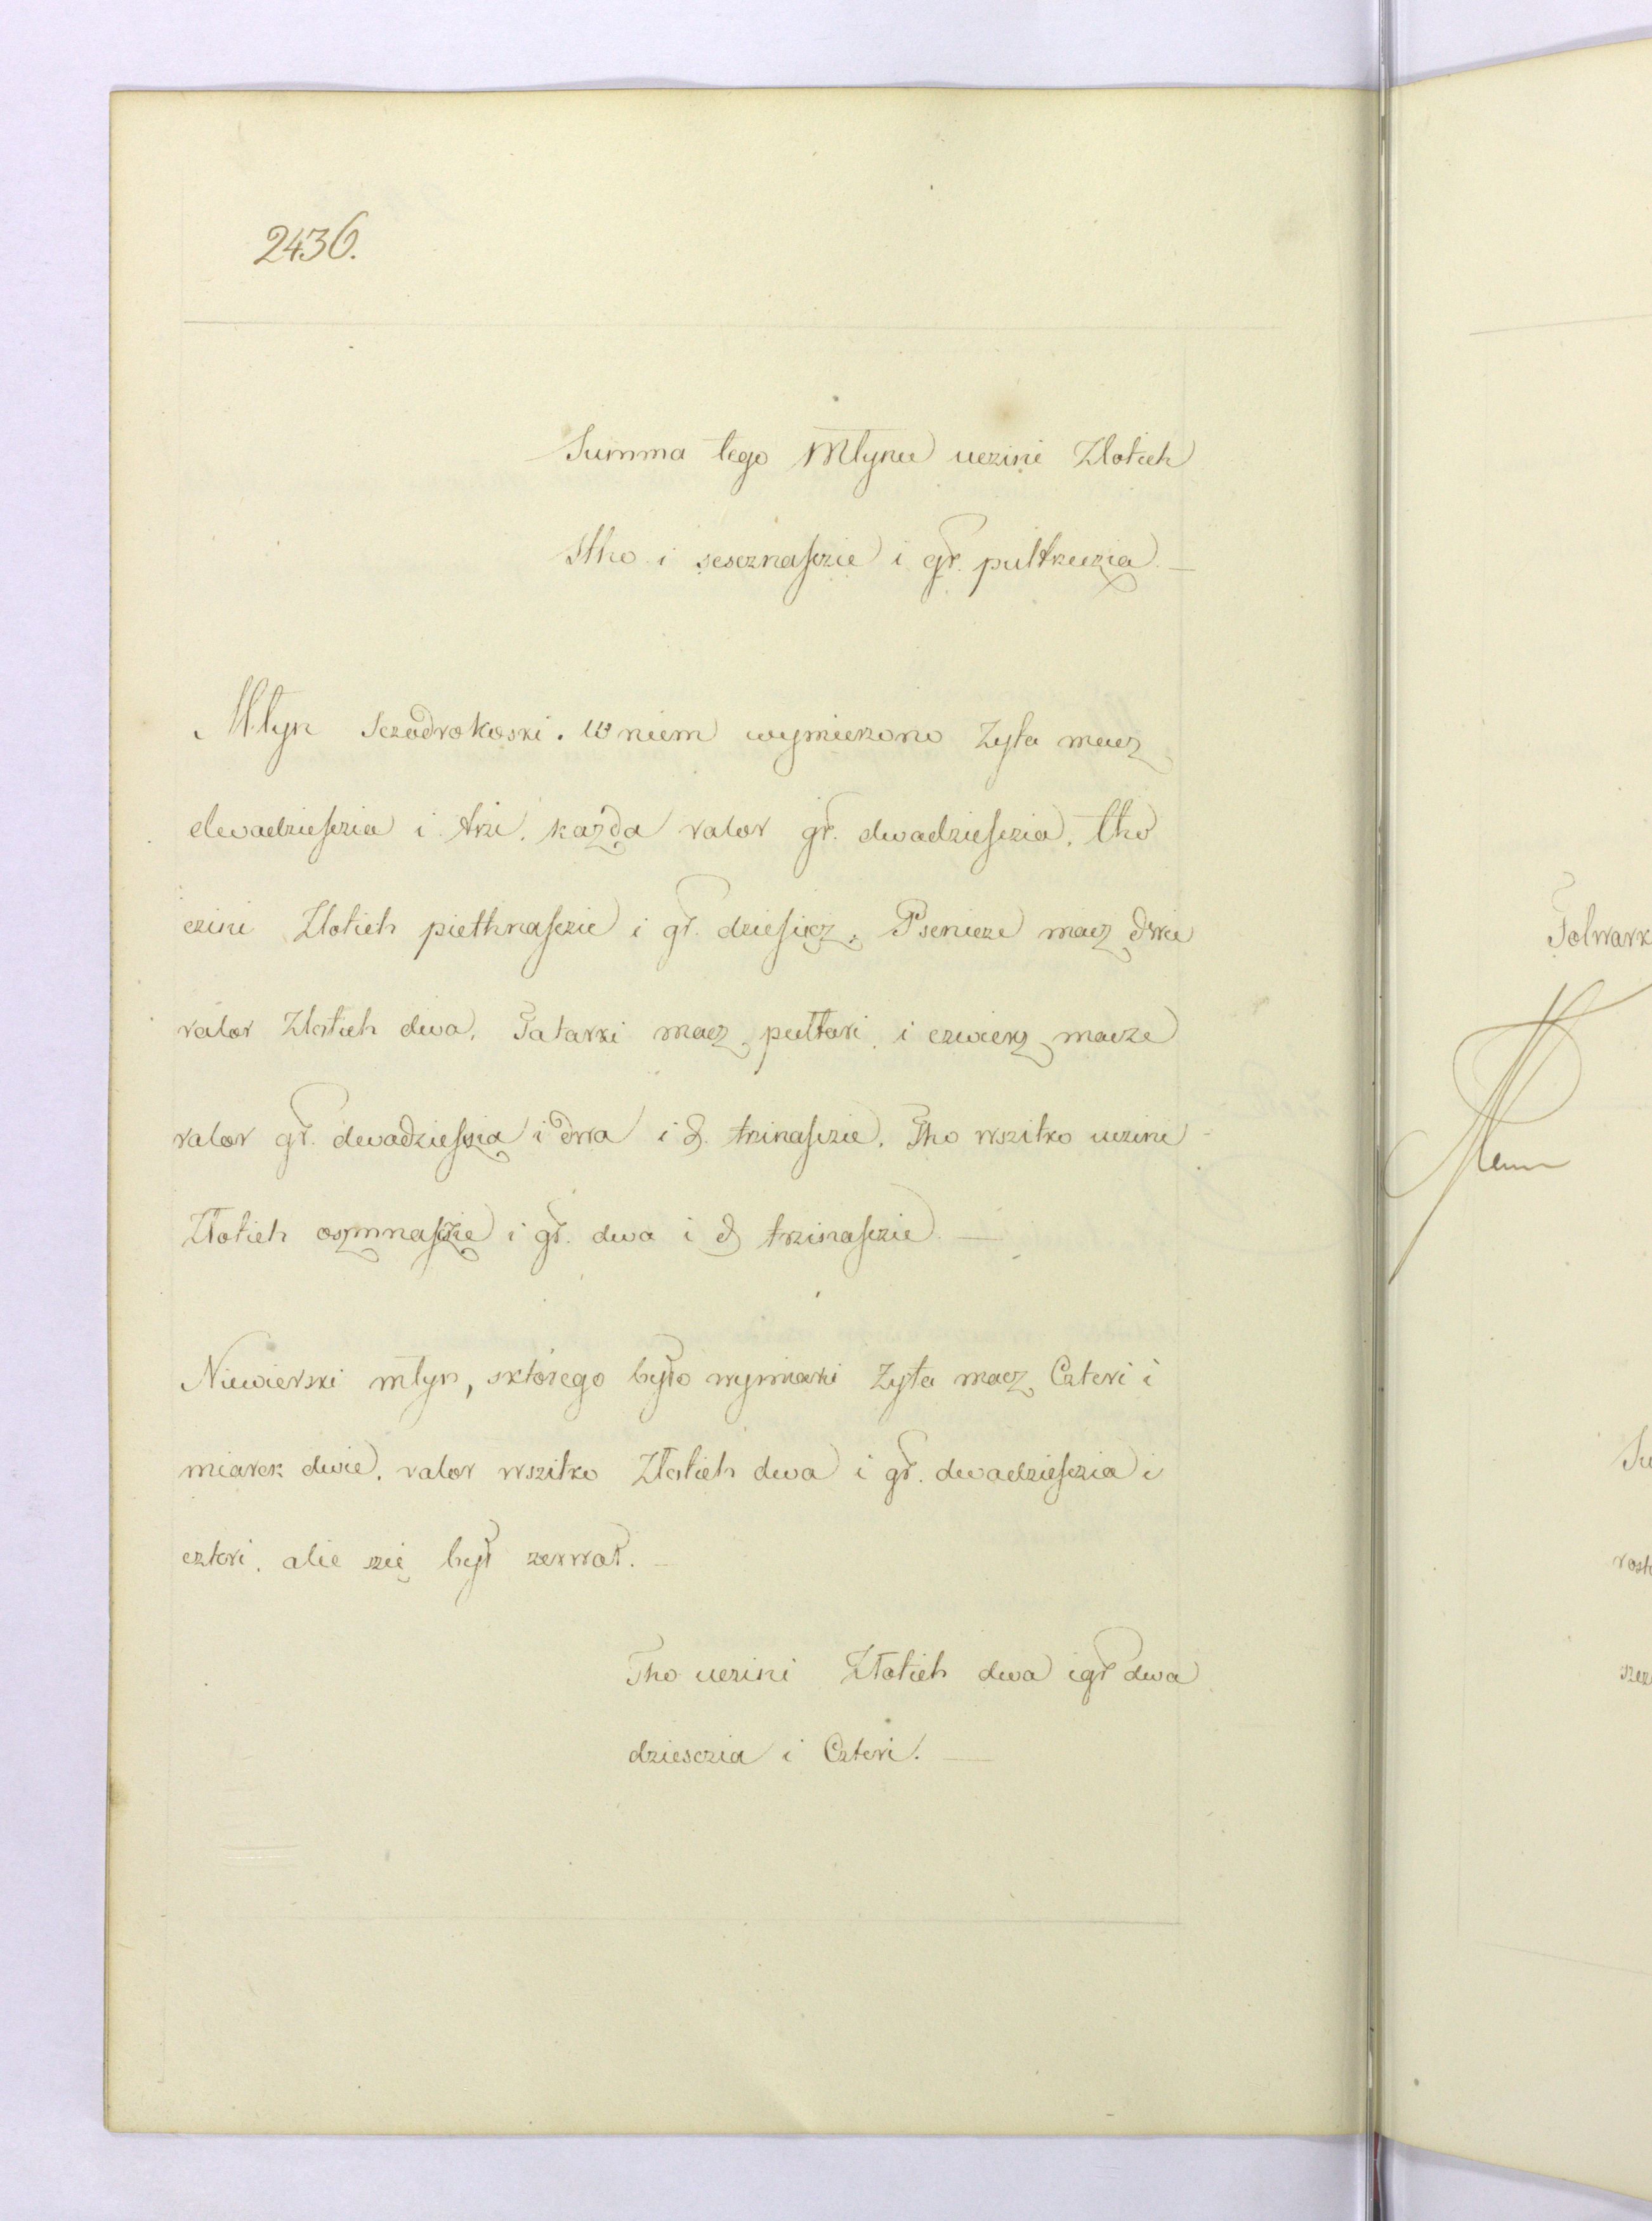 2436.
Summa tego Młynu uczini Zlotich
Stho i sescznaſczie i gr. pultrzeczia.
Młyn Sczodrokoski. W niem wymierzono Zyta macz
dwadzieſczia i trzi. kazda valor gr. dwadzieſczia. tho
czini Zlotich piethnaſczie i gr. dzieſięcz. Psenicze macz dwie
valor Zlotich dwa. Tatarki macz pultori i czwiercz macze
valor gr. dwadzieſczia i dwa i d. trzinaſczie. Tho wszitko uczini
Złotich oszmnaſczie i gr. dwa i d trzinaſczie.
Niewierski młyn, sktórego było wymiarki Zyta macz Czteri i
miarek dwie. valor wszitko Złotich dwa i gr. dwadzieſczia i
cztori. alie szię był zerwał.
Tho uczini Złotich dwa i gr dwa
dziesczia i Czteri.
Folwark